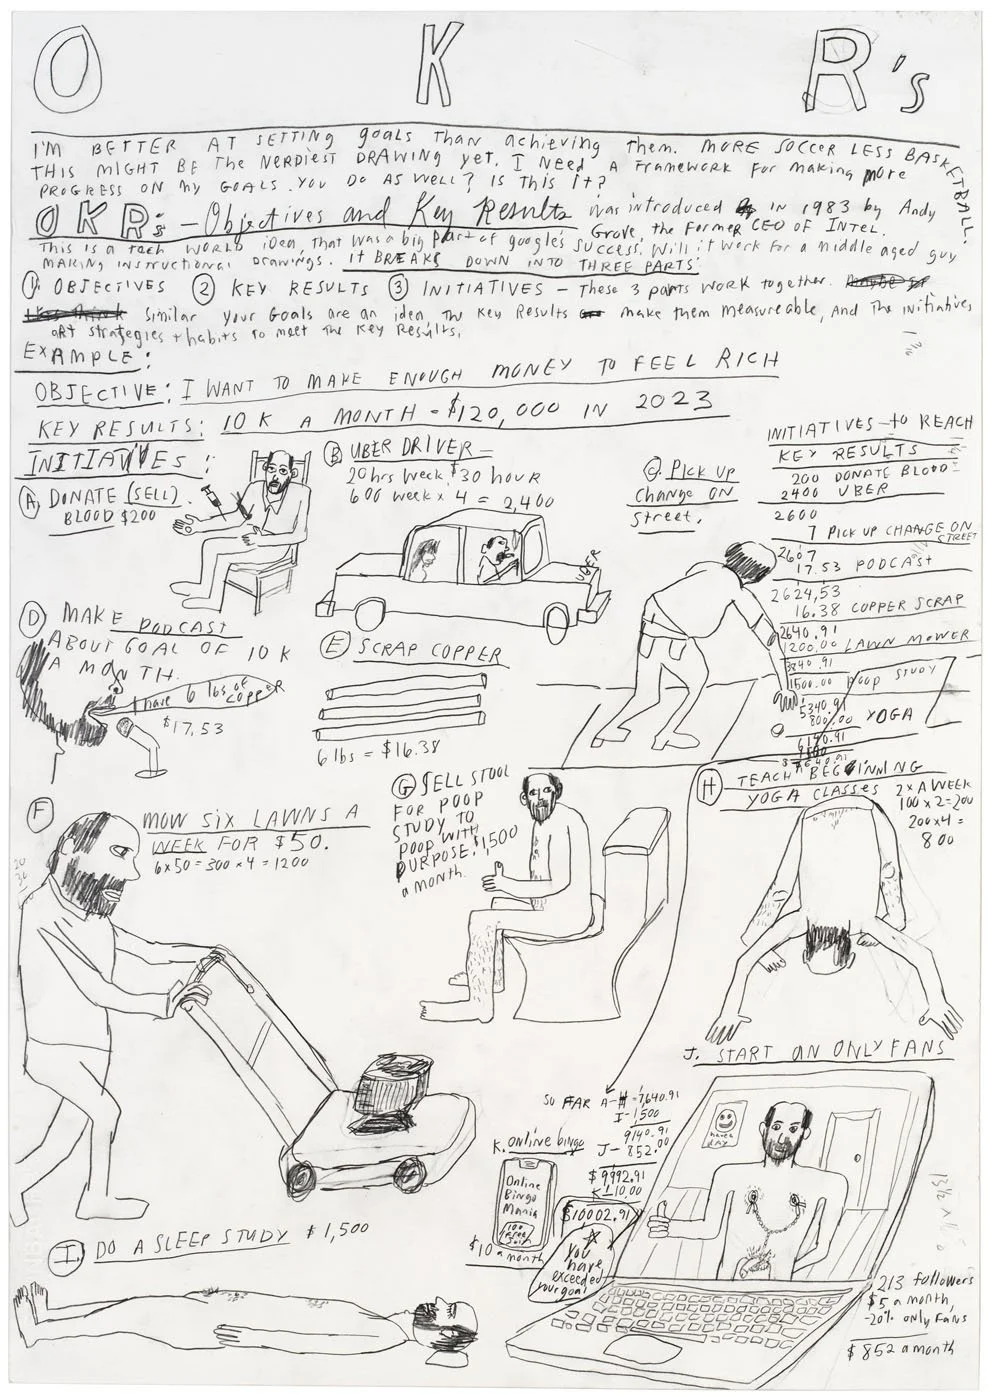 O K R's
I'M BETTER AT SETTING goals Than achieving Them. MORE SOCCER LESS BASKETBALL.
THIS MIGHT BE The NERDIEST DRAWING yet. I NEED A FrameworK For making more
PROGRESS ON my GOALS. YOU DO AS WELL? IS THIS IT?
OKR's - Objectives and Key Results was introduced in 1983 by Andy
Grove, the Former CEO OF INTEL.
This is a tech WORLD idea, that was a big part of google's success. Will it work for a middle aged guy
MAKING INSTRUCTIONAL Drawings. IT BREAKS DOWN INTO THREE PARTS:
1. OBJECTIVES 2 KEY RESULTS 3 INITIATIVES - These 3 parts work together.
Similar your Goals are an idea The Key Results make them measureable, And The initiatives
are strategies + habits to meet the Key Results.
EXAMPLE:
OBJECTIVE: I WANT TO MAKE ENOUGH MONEY TO FEEL RICH
KEY RESULTS: 10 K A MONTH - $120,000 IN 2023
INITIATIVES:
A, DONATE (SELL).
BLOOD $200
B UBER DRIVER -
20 hrs week $30 HOUR
600 week x 4 = 2,400
UBER
C. Pick up
change on
street.
INITIATIVES - to REACH
KEY RESULTS
200 DONATE BLOOD
2400 UBER
2600
7 PICK UP CHANGE ON STREET
2607
17.53 PODCAST
2624,53
16.38 COPPER SCRAP
2640.91
1200.00 LAWN MOWER
3840.91
1500.00 POOP STUDY
5340.91
800.00 YOGA
6140.91
D MAKE PODCAST
ABOUT GOAL OF 10 K
A MONTH.
I have 6 lbs of copper
$17.53
E SCRAP COPPER
6 lbs = $16.38
F
MOW SIX LAWNS A
WEEK FOR $50.
6x50=300x4=1200
G SELL STOOL
FOR POOP
STUDY TO
POOP WITH
PURPOSE. $1,500
a month.
H TEACH BEGINNING
YOGA CLASSES
2 x A WEEK
100 x 2=200
200x4=
800
I. DO A SLEEP STUDY $1,500
J. START AN ONLY FANS
have a
DAY
SO FAR A-H =7,640.91
I-1,500
9140.91
J- 852.00
$9992.91
K 10.00
$10002.91
You
have
exceeded
your goal
K. online bingo
Online
Bingo
Mania
$10 a month
213 followers
$5 a month,
-20% only Fans
$852 a month